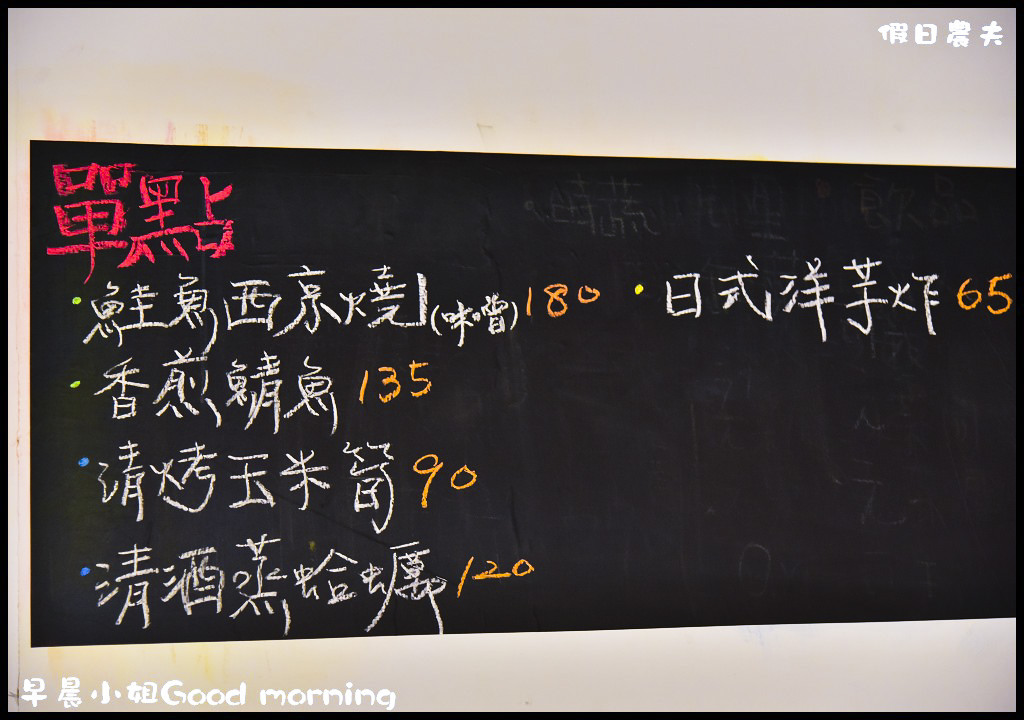 假日農夫
單點
•鮭魚西京燒(味噌)180
•香煎鯖魚 135
•清烤玉米筍 90
•清酒蒸蛤蠣 120
•日式洋芋炸 65
早晨小姐Good morning